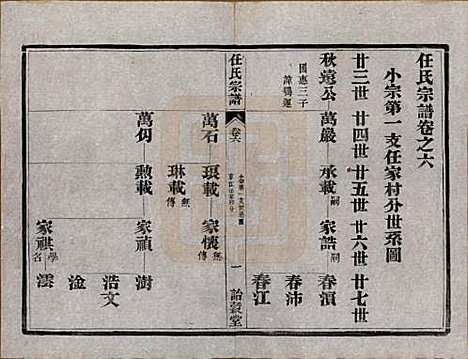 任氏宗譜卷之六
小宗第一支任家村分世系圖
廿三世 廿四世 廿五世 廿六世 廿七世
秋遠公 萬嚴 承載嗣 家誥嗣 春濱
國惠三子
諱錫運
春沛
春江
任氏宗譜 卷六 一 詒穀堂
萬石 琅載 家懷無傳
琳載無傳
萬仞 勲載 家禎 澍
浩文
淦
家祺學名 澐